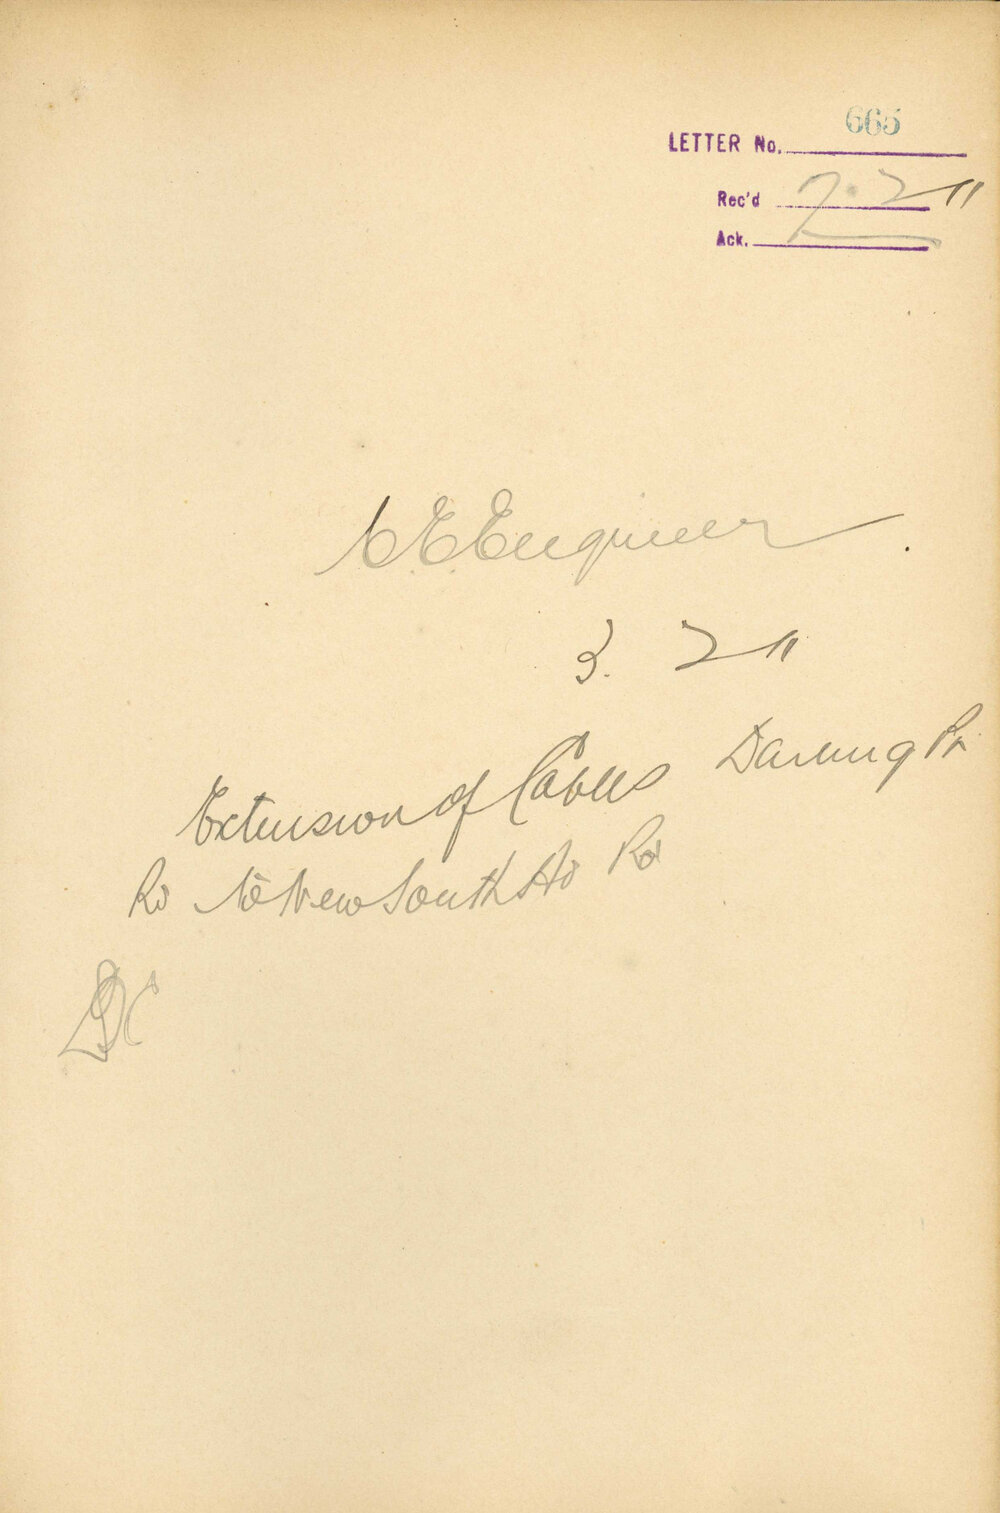 LETTER No. 665
Rec'd 7. 2 11
Ack.
C E Engineer
3. 2 11
Extension of Cables Darling Pt
Rd to New South Hd Rd